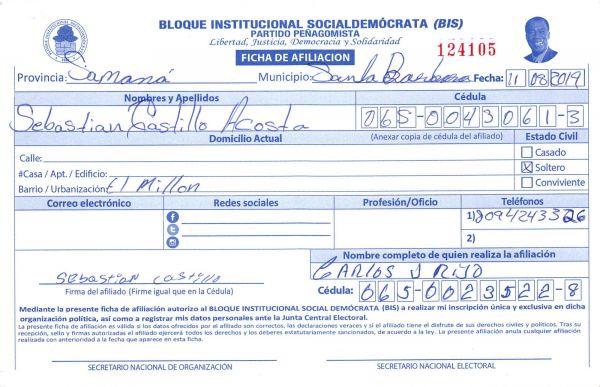 BLOQUE INSTITUCIONAL SOCIALDEMÓCRATA (BIS)
PARTIDO PEÑAGOMISTA
Libertad, Justicia, Democracia y Solidaridad
FICHA DE AFILIACION
124105
Provincia: Samaná Municipio: Santa Barbara Fecha: 11/08/2019
Nombres y Apellidos Cédula
Sebastian Castillo Acosta 065-0043061-3
Domicilio Actual (Anexar copia de cédula del afiliado) Estado Civil
Calle: Casado
#Casa / Apt. / Edificio: Soltero
Barrio / Urbanización: El Millon Conviviente
Correo electrónico Redes sociales Profesión/Oficio Teléfonos
1) 8094243326
2)
Nombre completo de quien realiza la afiliación
Sebastian Castillo CARLOS J RIJO
Firma del afiliado (Firme igual que en la Cédula) Cédula: 065-0023522-8
Mediante la presente ficha de afiliación autorizo al BLOQUE INSTITUCIONAL SOCIAL DEMÓCRATA (BIS) a realizar mi inscripción única y exclusiva en dicha
organización política, así como a registrar mis datos personales ante la Junta Central Electoral.
La presente ficha de afiliación es válida si los datos ofrecidos por el afiliado son correctos, las declaraciones veraces y si el afiliado tiene el disfrute de sus derechos civiles y políticos. Tras su
recepción, sello y firmas autorizadas el afiliado ejercerá todos los derechos y los deberes estatutariamente sancionados, de acuerdo a la ley. La presente afiliación anula cualquier afiliación
realizada con anterioridad a la fecha que aparece en esta ficha.
SECRETARIO NACIONAL DE ORGANIZACIÓN SECRETARIO NACIONAL ELECTORAL